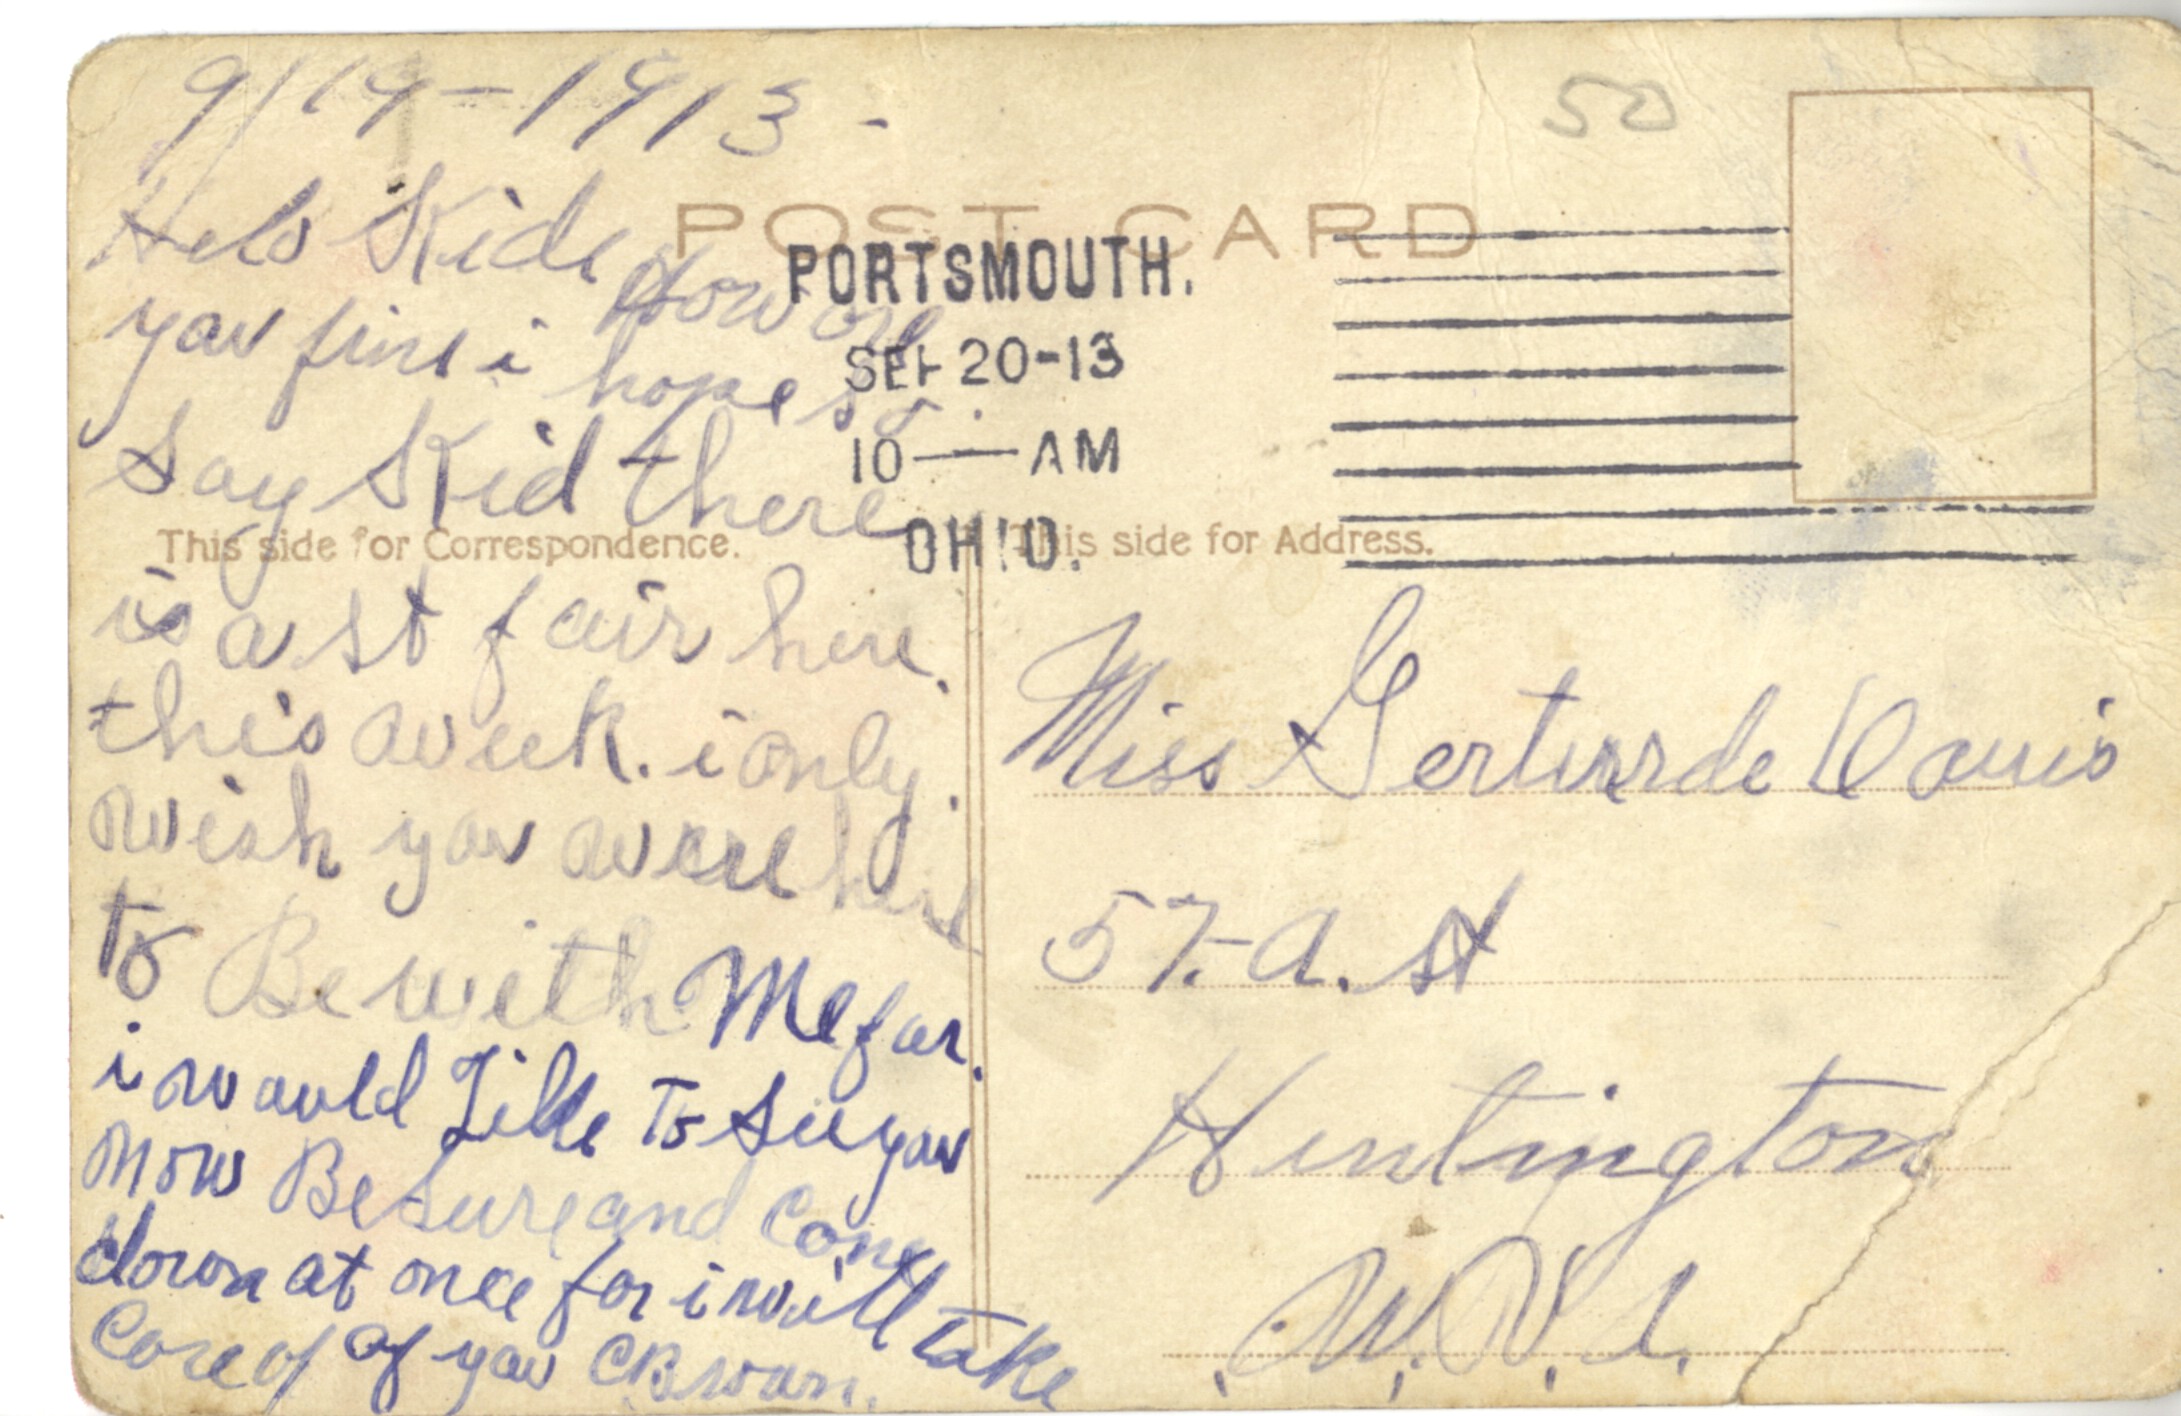 9/19-1913-
50
POST CARD
Helo Kide How are
PORTSMOUTH.
SEP 20-13
10—AM
OHIO.
you fine i hope so
Say Kid there
This side for Correspondence.
This side for Address.
is a st fair here.
this week. i only
wish you were here
to Be with Me for
i would Like To See you
now Be sure and Come
down at once for i will take
Care of of you CB
Miss Gerturde Davis
57-a. St
Huntington
W. V.